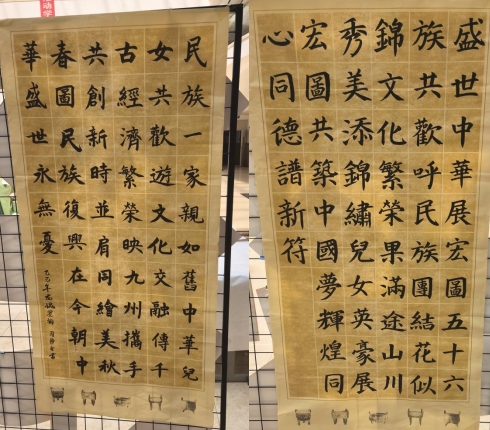 民族一家親如舊中華兒
女共歡遊文化交融傳千
古經濟繁榮映九州攜手
共創新時並肩同繪美秋
春圖民族復興在今朝中
華盛世永無憂
乙巳年
盛世中華展宏圖五十六
族共歡呼民族團結花似
錦文化繁榮果滿途山川
秀美添錦繡兒女英豪展
宏圖共築中國夢輝煌同
心同德譜新符